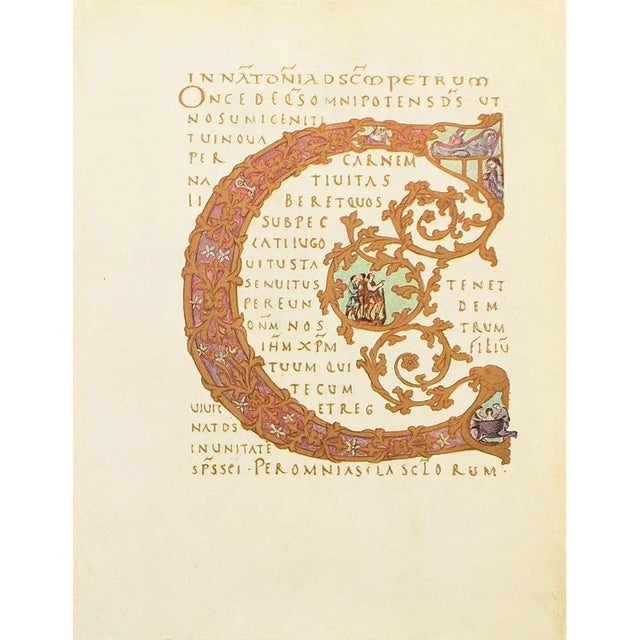 IN NAT̄ DN̄I AD SC̄M PETRUM
ONCEDE QS OMNIPOTENS DS̄ UT
NOS UNIGENITI
TUI NOUA
PER CARNEM
NA TIUITAS
LI BERET QUOS
SUB PEC
CATI IUGO
UITUSTA
SERUITUS TENET
PER EUN DEM
DN̄M NOS TRUM
IHM̄ XPM̄ FILIŪ
TUUM QUI
TECUM
UIUIT ET REG
NAT DS
IN UNITATE
SPS̄ SCI · PER OMNIA S̄CLA SCLORUM ·